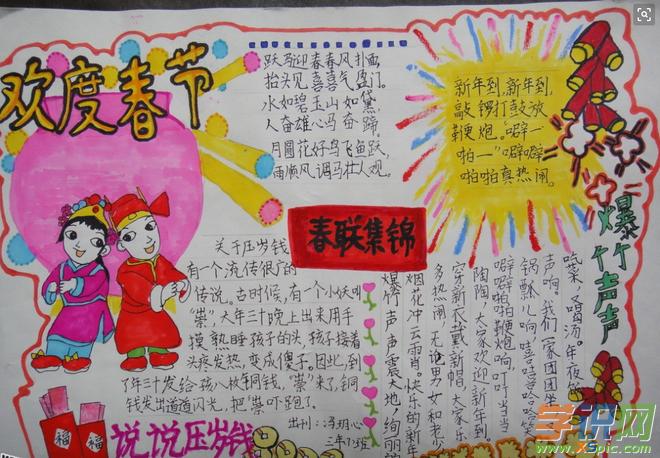 欢度春节
跃马迎春春风扑面,
抬头见喜喜气盈门。
水如碧玉山如黛,
人奋雄心马奋蹄。
月圆花好鸟飞鱼跃
雨顺风调马壮人欢。
新年到,新年到,
敲锣打鼓放
鞭炮。"噼一
啪一"噼噼
啪啪真热闹。
爆竹声声
春联集锦
关于压岁钱
有一个流传很广的
传说。古时候,有一个小妖叫
"祟",大年三十晚上出来用手
摸熟睡孩子的头,孩子接着
头疼发热,变成傻子。因此,到
了年三十发给孩八枚年铜钱,"祟"来了,铜
钱发出道道闪光,把"祟"吓跑了。
出刊:
三年
班
吃菜,圣喝汤。年夜饭
声啊,我们一家团团坐
锅瓢儿响,哇哇哈哈笑
噼噼啪啪鞭炮响,叮叮当当
陶陶,大家欢迎新年到
穿新衣戴新帽,大家乐
多热闹,无论男女和老少
烟花冲云霄。快乐的新年
爆竹声声震大地,绚丽的
福
福
说说压岁钱
学识网
www.XSpic.com